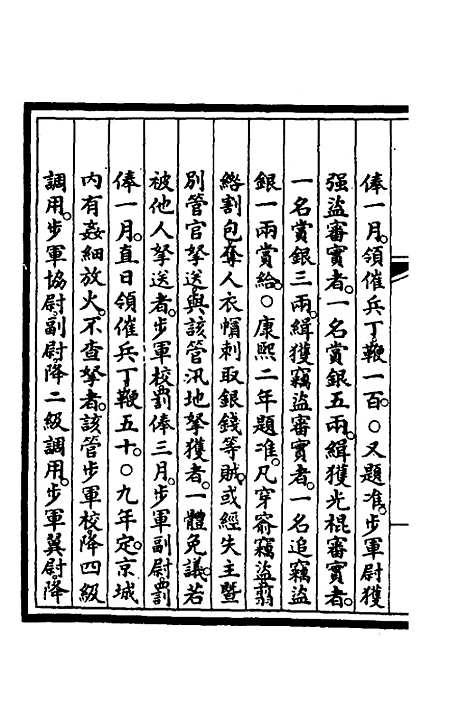 俸一月。領催兵丁鞭一百。○又題准。步軍尉獲
强盜審實者。一名賞銀五兩。緝獲光棍審實者。
一名賞銀三兩。緝獲竊盜審實者。一名追竊盜
銀一兩賞給。○康熙二年題准。凡穿窬竊盜。翦
綹割包。奪人衣帽。刺取銀錢等賊。或經失主曁
別管官拏送。與該管汛地拏獲者。一體免議。若
被他人拏送者。步軍校罰俸三月。步軍副尉罰
俸一月。直日領催兵丁鞭五十。○九年定。京城
內有姦細放火。不查拏者。該管步軍校。降四級
調用。步軍協尉。副尉。降二級調用。步軍翼尉。降